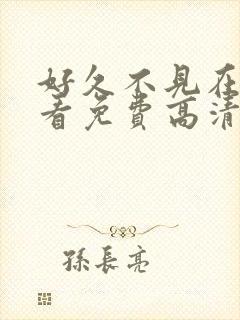 好久不見在
看免費高清
孫長亮